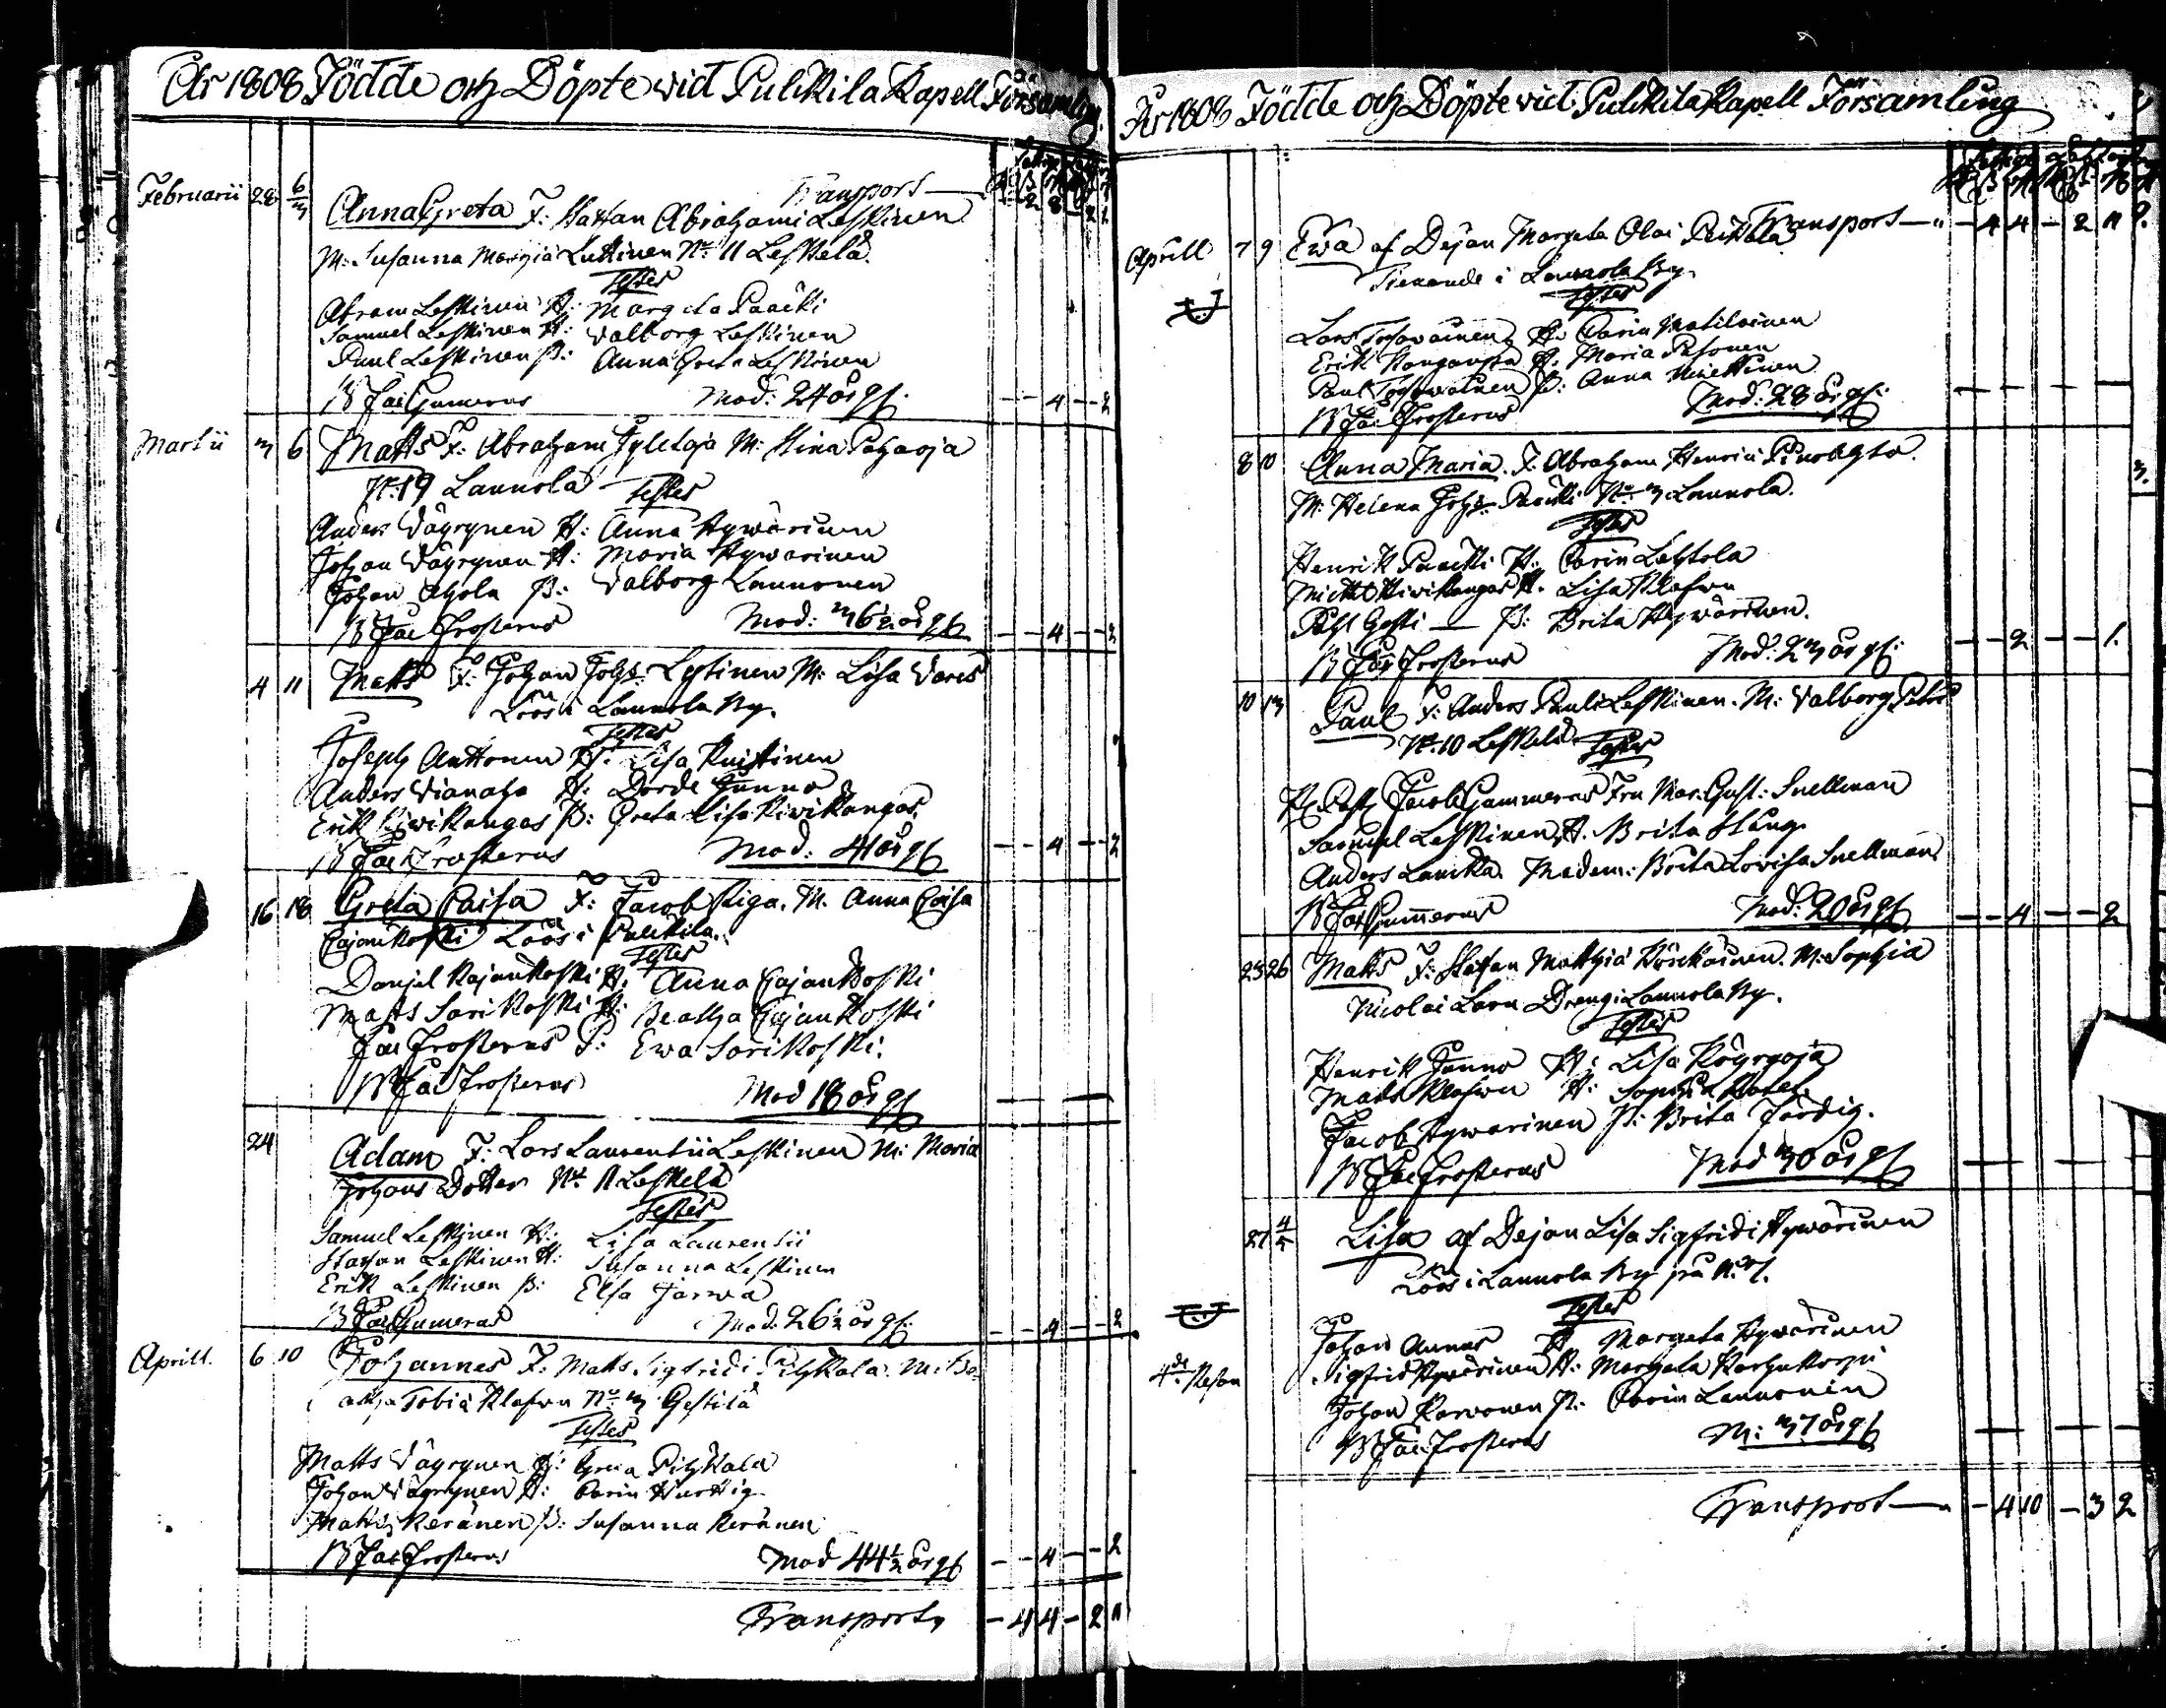 År 1808 Födde och Döpte wid Pulkila Kapell Församling.
Transport — 2 8 – 2 1
Februarii 28 6/3 Anna Greta F: Staffan Abrahami Leskinen
M: Susanna Mathiæ Luttinen No 11 Leskelä.
Testes
Abram Leskinen H: Margeta Paacki
Samuel Leskinen H: Valborg Leskinen
Paul Leskinen P: Anna Greta Leskinen
B Jac Gumerus Mod: 24 år gl. – – 4 – – 2
Martii 3 6 Matts F: Abraham M: Stina
No 19 Launola Testes
Anders Väyrynen H: Anna Hywärinen
Johan Väyrynen H: Maria Hywärinen
Johan Ahola P: Valborg Launonen
B Jac Frosterus Mod: 36½ år gl – – 4 – – 2
4 11 Matts F: Johan Johs: Lestinen M: Lisa Vares
Löös i Launola By.
Testes
Joseph Anttonen H: Lisa
Anders Vianaho H: Dorde Junno
Erik Kiwikangas P: Greta Lisa Kiwikangas.
B Jac Frosterus Mod: 41 år gl – – 4 – – 2
16 18 Greta Caisa F: Jacob Riga. M. Anna Caisa
Cajankoski Löös i Pulkila.
Testes
Danjel Kajankoski H. Anna Cajankoski
Matts Sarikoski H: Beatha Cajankoski
Jac Frosterus P: Ewa Sarikoski.
B Jac Frosterus Mod 18 år gl — —
24 Adam F: Lars Laurentii Leskinen M: Maria
Johans Dotter No 11 Leskelä
Testes
Samuel Leskinen H: Lisa Laurentii
Staffan Leskinen H: Susanna Leskinen
Erik Leskinen P: Elsa Jarwa
B Jac Gumerus Mod: 26½ år gl. – – 4 – – 2
Aprill. 6 10 Johannes F: Matts Sigfridi Pihkala. M: Be-
atha Tobiæ Klafwu No 3 Gestilä
Testes
Matts Väyrynen H: Greta Pihkala
Johan Väyrynen H: Carin Hurtig
Matts Keränen P: Susanna Keränen
B Jac Frosterus Mod 44½ år gl – – 4 – – 2
Transport – 4 4 – 2 11
År 1808 Födde och Döpte wid Pulkila Kapell Församling
Transport – 4 4 – 2 11
Aprill 7 9 Ewa af Dejan Margeta Olai
Tienande i Launola By.
Testes
Lars H: Carin Matilainen
Erik Kangasp H: Maria
Paul P: Anna Miettinen
B Jac Frosterus Mod: 28 år gl. — — —
8 10 Anna Maria. F. Abraham Henrici
M: Helena Johs: Paacki No 3 Launola.
Testes
Henrik Paacki H: Carin Lehtola
Mickel Kiwikangas H. Lisa Klafwu
Pehr Gesti — P: Brita Hywärinen.
B Jac Frosterus Mod: 23 år gl. – – 2 – – 1.
10 13 Paul F: Anders Pauli Leskinen. M: Valborg Petri
No 10 Leskelä Testes
Jacob Gummerus Fru Mar: Gust: Snellman
Samuel Leskinen H. Brita Stång
Anders Laurila Madem: Brita Lovisa Snellman
B Jac Gummerus Mod: 20 år gl – – 4 – – 2
25 26 Matts F: Staffan Matthiæ M: Sophia
Nicolai Lara Dreng i Launola By.
Testes
Henrik Junno H: Lisa
Matts Klafwu H: Sophia
Jacob Hywarinen P: Brita Färdig.
B Jac Frosterus Mod 30 år gl — — —
27 4/5 Lisa af Dejan Lisa Sigfridi Hywärinen
Löös i Launola By på No 7.
Testes
Johan Aunus H Margeta Hywärinen
4de Resan Sigfrid Hywärinen H: Margeta
Johan Karvonen P: Carin Launonen
B Jac Frosterus M: 37 år gl — — —
Transport – 4 10 – 3 2